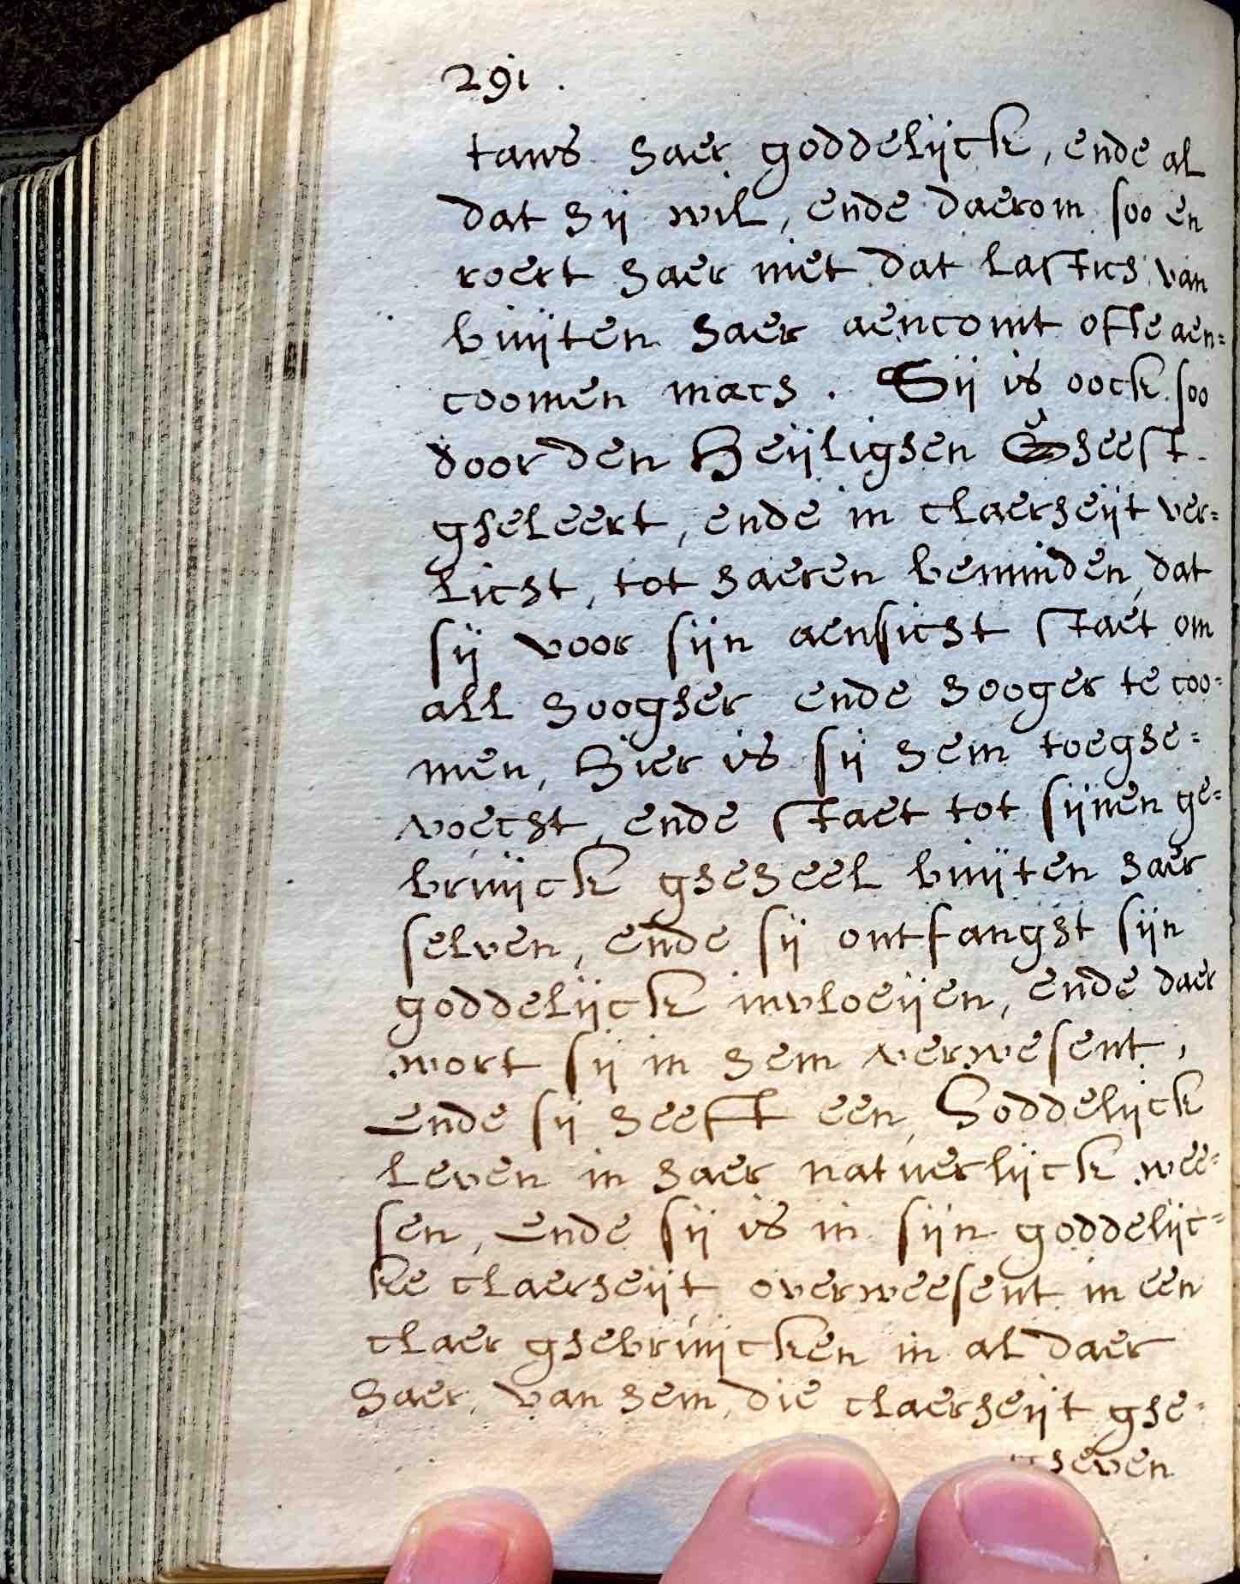 291.
tans haer goddelijck, ende al
dat hij wil, ende daerom soo en
roert haer niet dat lastichs van
buijten haer aencomt ofte aen=
coomen mach. Sij is oock soo
door den Heijlighen Gheest
gheleert, ende in claerheijt ver=
licht, tot haeren beminden, dat
sij voor sijn aensicht staet om
all hoogher ende hooger te coo=
men, hier is sij hem toeghe=
voecht, ende staet tot sijnen ge=
bruijck gheheel buijten haer
selven, ende sij ontfanght sijn
goddelijck invloeijen, ende daer
wort sij in hem verwesent,
Ende sij heeft een Goddelijck
leven in haer natuerlijck wee=
sen, Ende sij is in sijn goddelijc=
ke claerheijt overweesent in een
claer ghebruijcken in al daer
haer van hem die claerheijt ghe=
gheven